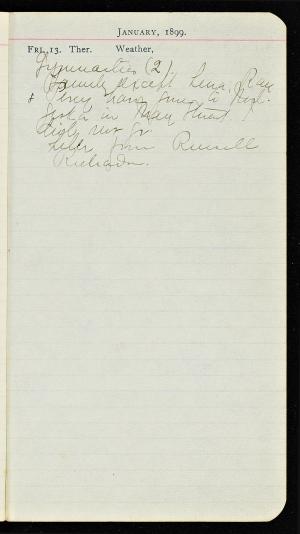 JANUARY, 1899.
FRI. 13. Ther. Weather,
Gymnastics (2).
Family except Lena, Ray
& Percy have gone to
in
not go
Letter from Russell
Richardson.